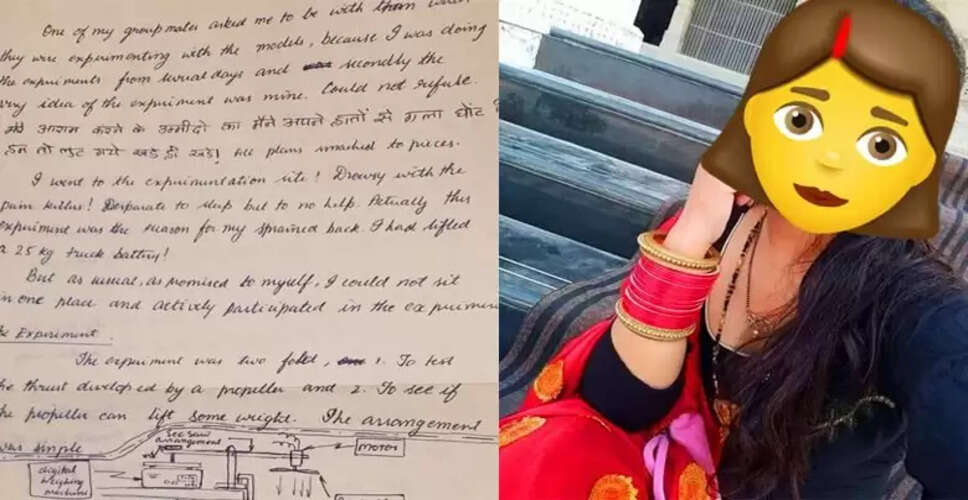 One of my groupmates asked me to be with them when
they were experimenting with the models, because I was doing
the experiments from several days and secondly the
very idea of the experiment was mine. Could not refuse.
मेरे आराम करने के उम्मीदों का मैंने अपने हातों से गला घोंट
हम तो लुट गये खडे ही खडे! All plans smashed to pieces.
I went to the experimentation site! Drowsy with the
pain killers! Desparate to sleep but to no help. Actually this
experiment was the reason for my sprained back. I had lifted
a 25 kg truck battery!
But as usual, as promised to myself, I could not sit
in one place and actively participated in the experiment
The Experiment.
The experiment was two fold, 1. To test
the thrust developed by a propeller and 2. To see if
the propeller can lift some weight. The arrangement
was simple
see saw
arrangement
MOTOR
digital
weighing
machine